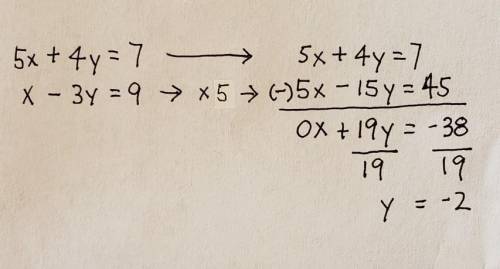 5x + 4y = 7 ⟶ 5x + 4y = 7
x - 3y = 9 → x 5 → (-) 5x - 15y = 45
0x + 19y = -38
19 19
y = -2